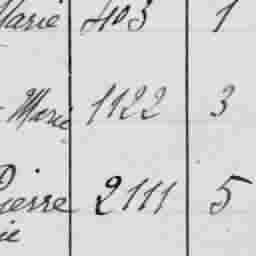 Marie 403 1
Marie 1122 3
Pierre 2111 5
ie